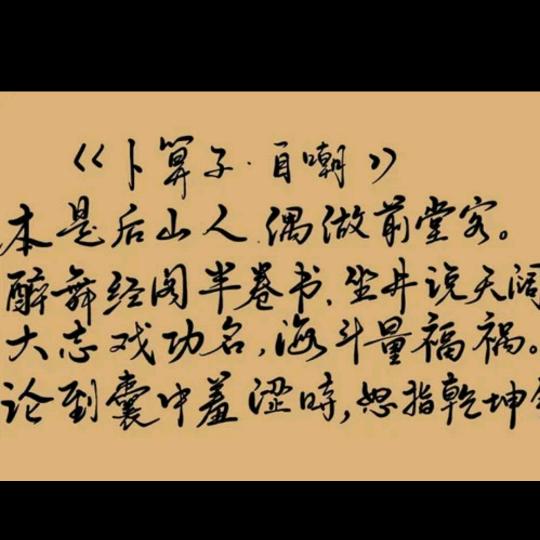 《卜算子·自嘲》
本是后山人,偶做前堂客。
醉舞经阁半卷书,坐井说天阔
大志戏功名,海斗量福祸。
论到囊中羞涩时,怒指乾坤